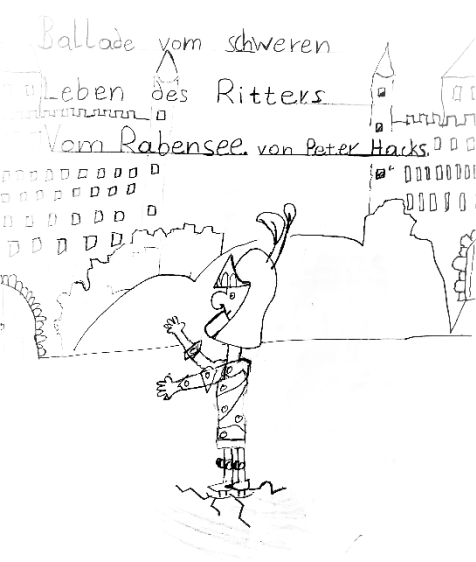 Ballade vom schweren
Leben des Ritters
Vom Rabensee. von Peter Hacks.